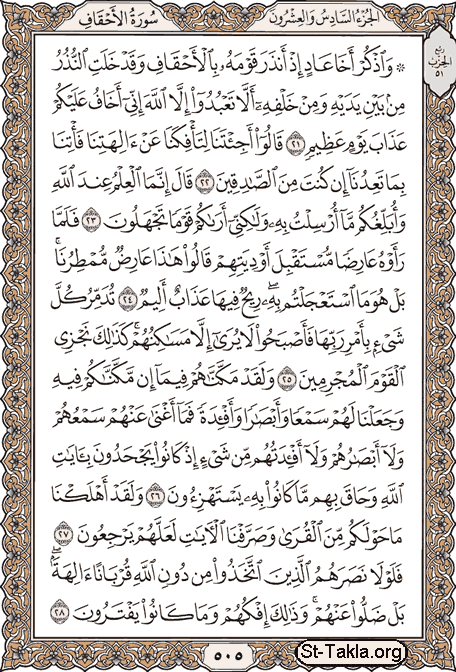 سُورَةُ الأَحْقَافِ
الجُزْءُ السَّادِسُ وَالعِشْرُونَ
ربع
الحزب
٥١
۞ وَٱذۡكُرۡ أَخَا عَادٍ إِذۡ أَنذَرَ قَوۡمَهُۥ بِٱلۡأَحۡقَافِ وَقَدۡ خَلَتِ ٱلنُّذُرُ
مِنۢ بَيۡنِ يَدَيۡهِ وَمِنۡ خَلۡفِهِۦٓ أَلَّا تَعۡبُدُوٓاْ إِلَّا ٱللَّهَ إِنِّيٓ أَخَافُ عَلَيۡكُمۡ
عَذَابَ يَوۡمٍ عَظِيمٖ ٢١ قَالُوٓاْ أَجِئۡتَنَا لِتَأۡفِكَنَا عَنۡ ءَالِهَتِنَا فَأۡتِنَا
بِمَا تَعِدُنَآ إِن كُنتَ مِنَ ٱلصَّٰدِقِينَ ٢٢ قَالَ إِنَّمَا ٱلۡعِلۡمُ عِندَ ٱللَّهِ
وَأُبَلِّغُكُم مَّآ أُرۡسِلۡتُ بِهِۦ وَلَٰكِنِّيٓ أَرَىٰكُمۡ قَوۡمٗا تَجۡهَلُونَ ٢٣ فَلَمَّا
رَأَوۡهُ عَارِضٗا مُّسۡتَقۡبِلَ أَوۡدِيَتِهِمۡ قَالُواْ هَٰذَا عَارِضٞ مُّمۡطِرُنَاۚ
بَلۡ هُوَ مَا ٱسۡتَعۡجَلۡتُم بِهِۦۖ رِيحٞ فِيهَا عَذَابٌ أَلِيمٞ ٢٤ تُدَمِّرُ كُلَّ
شَيۡءِۭ بِأَمۡرِ رَبِّهَا فَأَصۡبَحُواْ لَا يُرَىٰٓ إِلَّا مَسَٰكِنُهُمۡۚ كَذَٰلِكَ نَجۡزِي
ٱلۡقَوۡمَ ٱلۡمُجۡرِمِينَ ٢٥ وَلَقَدۡ مَكَّنَّٰهُمۡ فِيمَآ إِن مَّكَّنَّٰكُمۡ فِيهِ
وَجَعَلۡنَا لَهُمۡ سَمۡعٗا وَأَبۡصَٰرٗا وَأَفۡـِٔدَةٗ فَمَآ أَغۡنَىٰ عَنۡهُمۡ سَمۡعُهُمۡ
وَلَآ أَبۡصَٰرُهُمۡ وَلَآ أَفۡـِٔدَتُهُم مِّن شَيۡءٍ إِذۡ كَانُواْ يَجۡحَدُونَ بِـَٔايَٰتِ
ٱللَّهِ وَحَاقَ بِهِم مَّا كَانُواْ بِهِۦ يَسۡتَهۡزِءُونَ ٢٦ وَلَقَدۡ أَهۡلَكۡنَا
مَا حَوۡلَكُم مِّنَ ٱلۡقُرَىٰ وَصَرَّفۡنَا ٱلۡأٓيَٰتِ لَعَلَّهُمۡ يَرۡجِعُونَ ٢٧
فَلَوۡلَا نَصَرَهُمُ ٱلَّذِينَ ٱتَّخَذُواْ مِن دُونِ ٱللَّهِ قُرۡبَانًا ءَالِهَةَۢۖ
بَلۡ ضَلُّواْ عَنۡهُمۡۚ وَذَٰلِكَ إِفۡكُهُمۡ وَمَا كَانُواْ يَفۡتَرُونَ ٢٨
٥٠٥
St-Takla.org